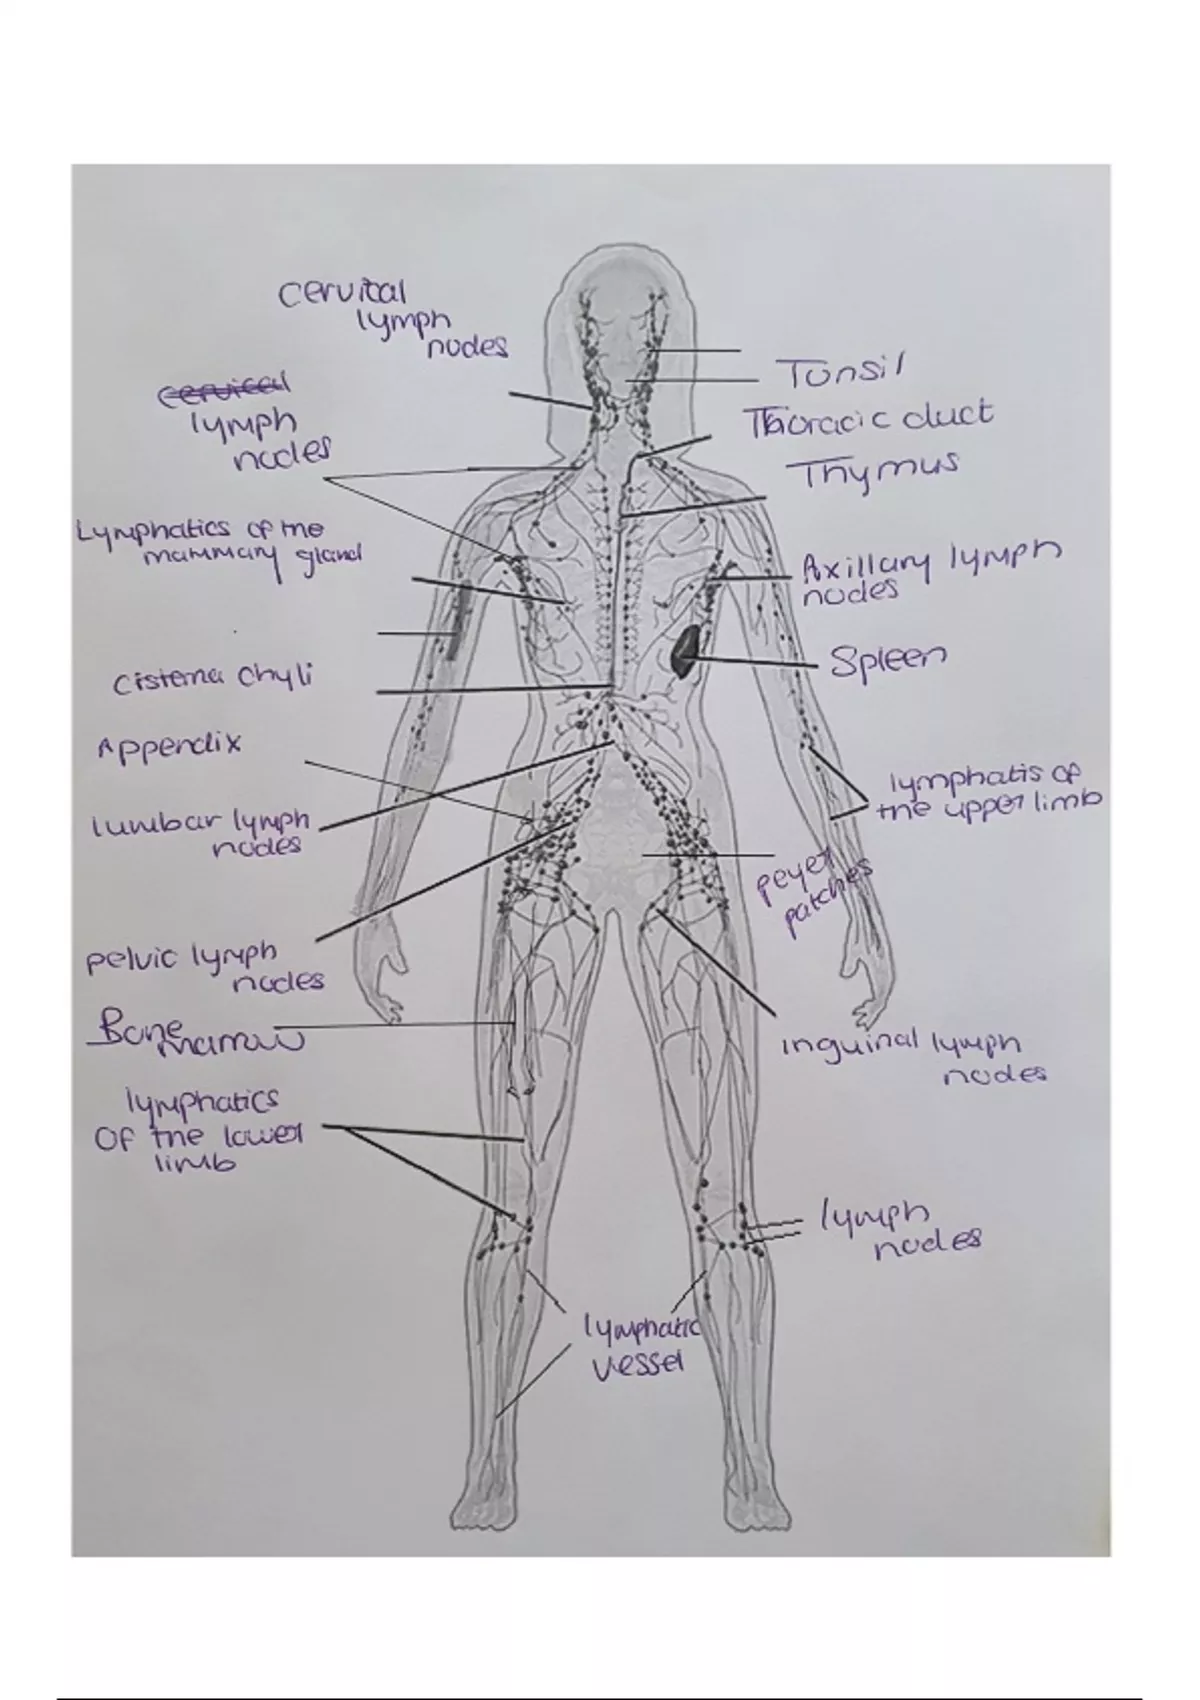 Cervical
lymph
nodes
cervical
lymph
nodes
Lymphatics of the
mammary gland
Cisterna Chyli
Appendix
lumbar lymph
nodes
pelvic lymph
nodes
Bone
marrow
lymphatics
Of the lower
limb
Tonsil
Thoracic duct
Thymus
Axillary lymph
nodes
Spleen
lymphatis of
the upper limb
peyer
patches
inguinal lymph
nodes
lymph
nodes
lymphatic
vessel